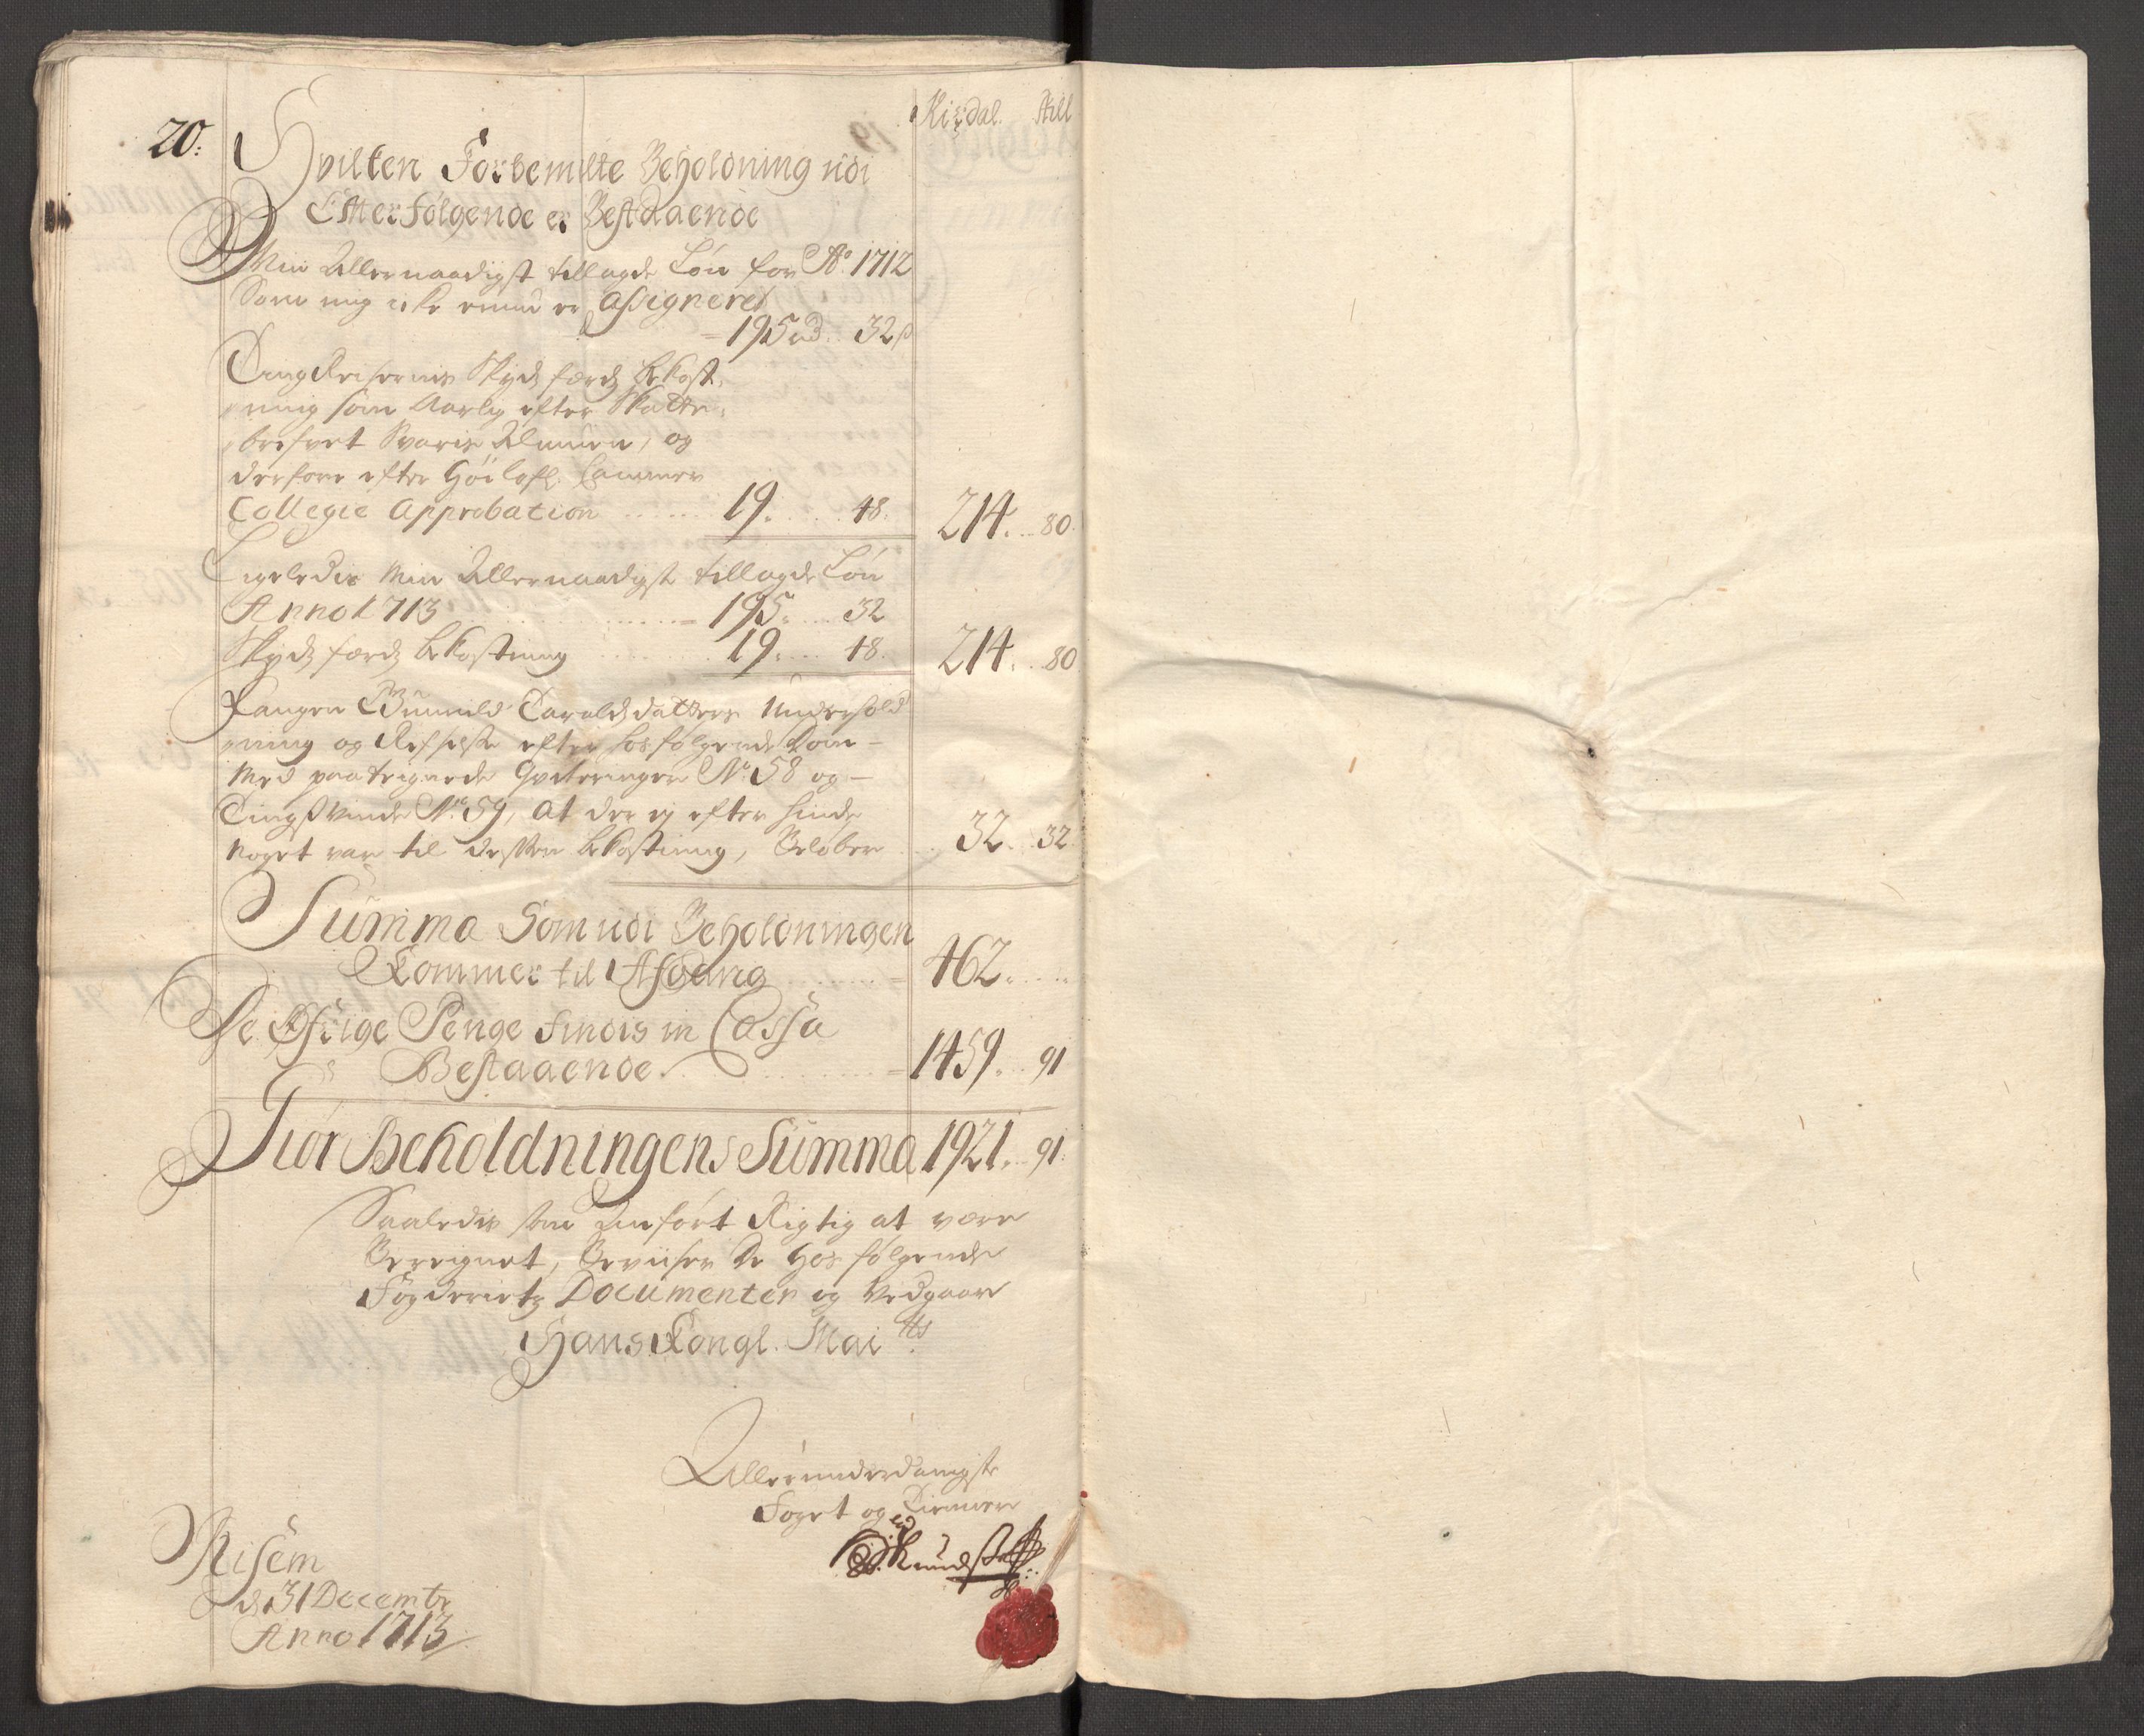 Rixdal. skill
20:
Hvilken Forbemelte Beholdning udi
Efterfølgende er Bestaaende
Min Allernaadigst tillagde Løn for Ao. 1712
Som mig icke ennu er assigneret
195 rd. 32 s
Ting Reisernis Skyds færds bekost-
ning som Aarlig efter Skatte-
brefvet Svaris Almuen, og
derfore efter Høilofl. Cammer
Collegie Approbation ...... 19. .... 48. 214. .. 80.
Ligeledis Min Allernaadigst tillagde Løn
Anno 1713 ...... 195. .... 32
Skyds færds bekostning ...... 19. .... 48. 214. .. 80
Fangen Gunnild Taraldsdatters Underhold
ning og Refselse efter hosfølgende Dom
Med paategnede Qviteringer No. 58 og
Tingsvinde No. 59, at der ej efter hinde
noget var til dessen bekostning, Beløber .. 32. .. 32
Summa Som udi Beholdningen
Kommer til Afgang ...... 462. ....
De Øfrige Penge findis in Cassa
Bestaaende ...... 1459. .. 91
Giør Beholdningens Summa 1921. .. 91.
Saaledis som Anført Rigtig at være
Bereignet, Beviiser de hosfølgende
Fogderiets Documenter og Vedgaar
Hans Kongl. Maitts
Allerunderdanigste
Foget og Tienner
Risem
d. 31 Decembr
Anno 1713